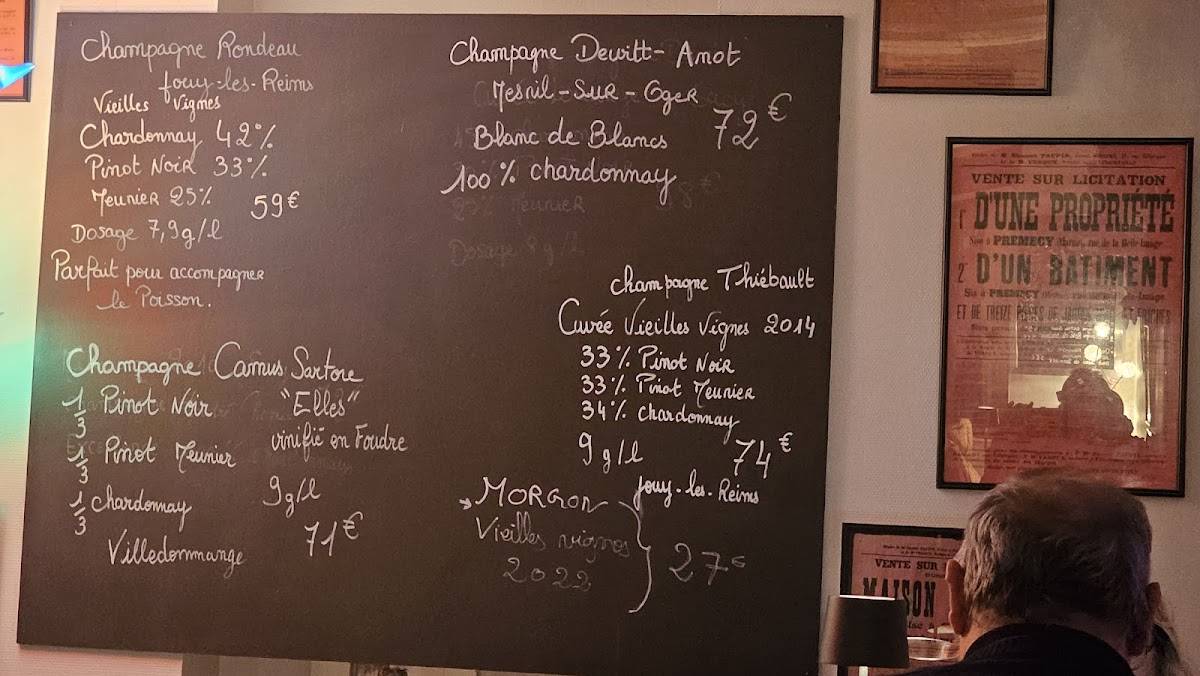 Champagne Rondeau
Jouy-les-Reims
Vieilles Vignes
Chardonnay 42%
Pinot Noir 33%
Meunier 25%
59€
Dosage 7,9g/l
Parfait pour accompagner
le Poisson.
Champagne Dewitt-Anot
Mesnil-Sur-Oger
72€
Blanc de Blancs
100% chardonnay
Champagne Camus Sartore
1/3 Pinot Noir
"Elles"
1/3 Pinot Meunier
vinifié en Foudre
1/3 chardonnay
9g/l
71€
Villedommange
champagne Thiébault
Cuvée Vieilles Vignes 2014
33% Pinot Noir
33% Pinot Meunier
34% chardonnay
9g/l
74€
Jouy-les-Reims
MORGON
Vieilles vignes
2022
27€
25% Meunier
Dosage 8 g/l
VENTE SUR LICITATION
1° D'UNE PROPRIÉTÉ
Sise à PREMECY (Marne), rue de la Belle-Image
2° D'UN BATIMENT
Sis à PREMECY
VENTE SUR
MAISON